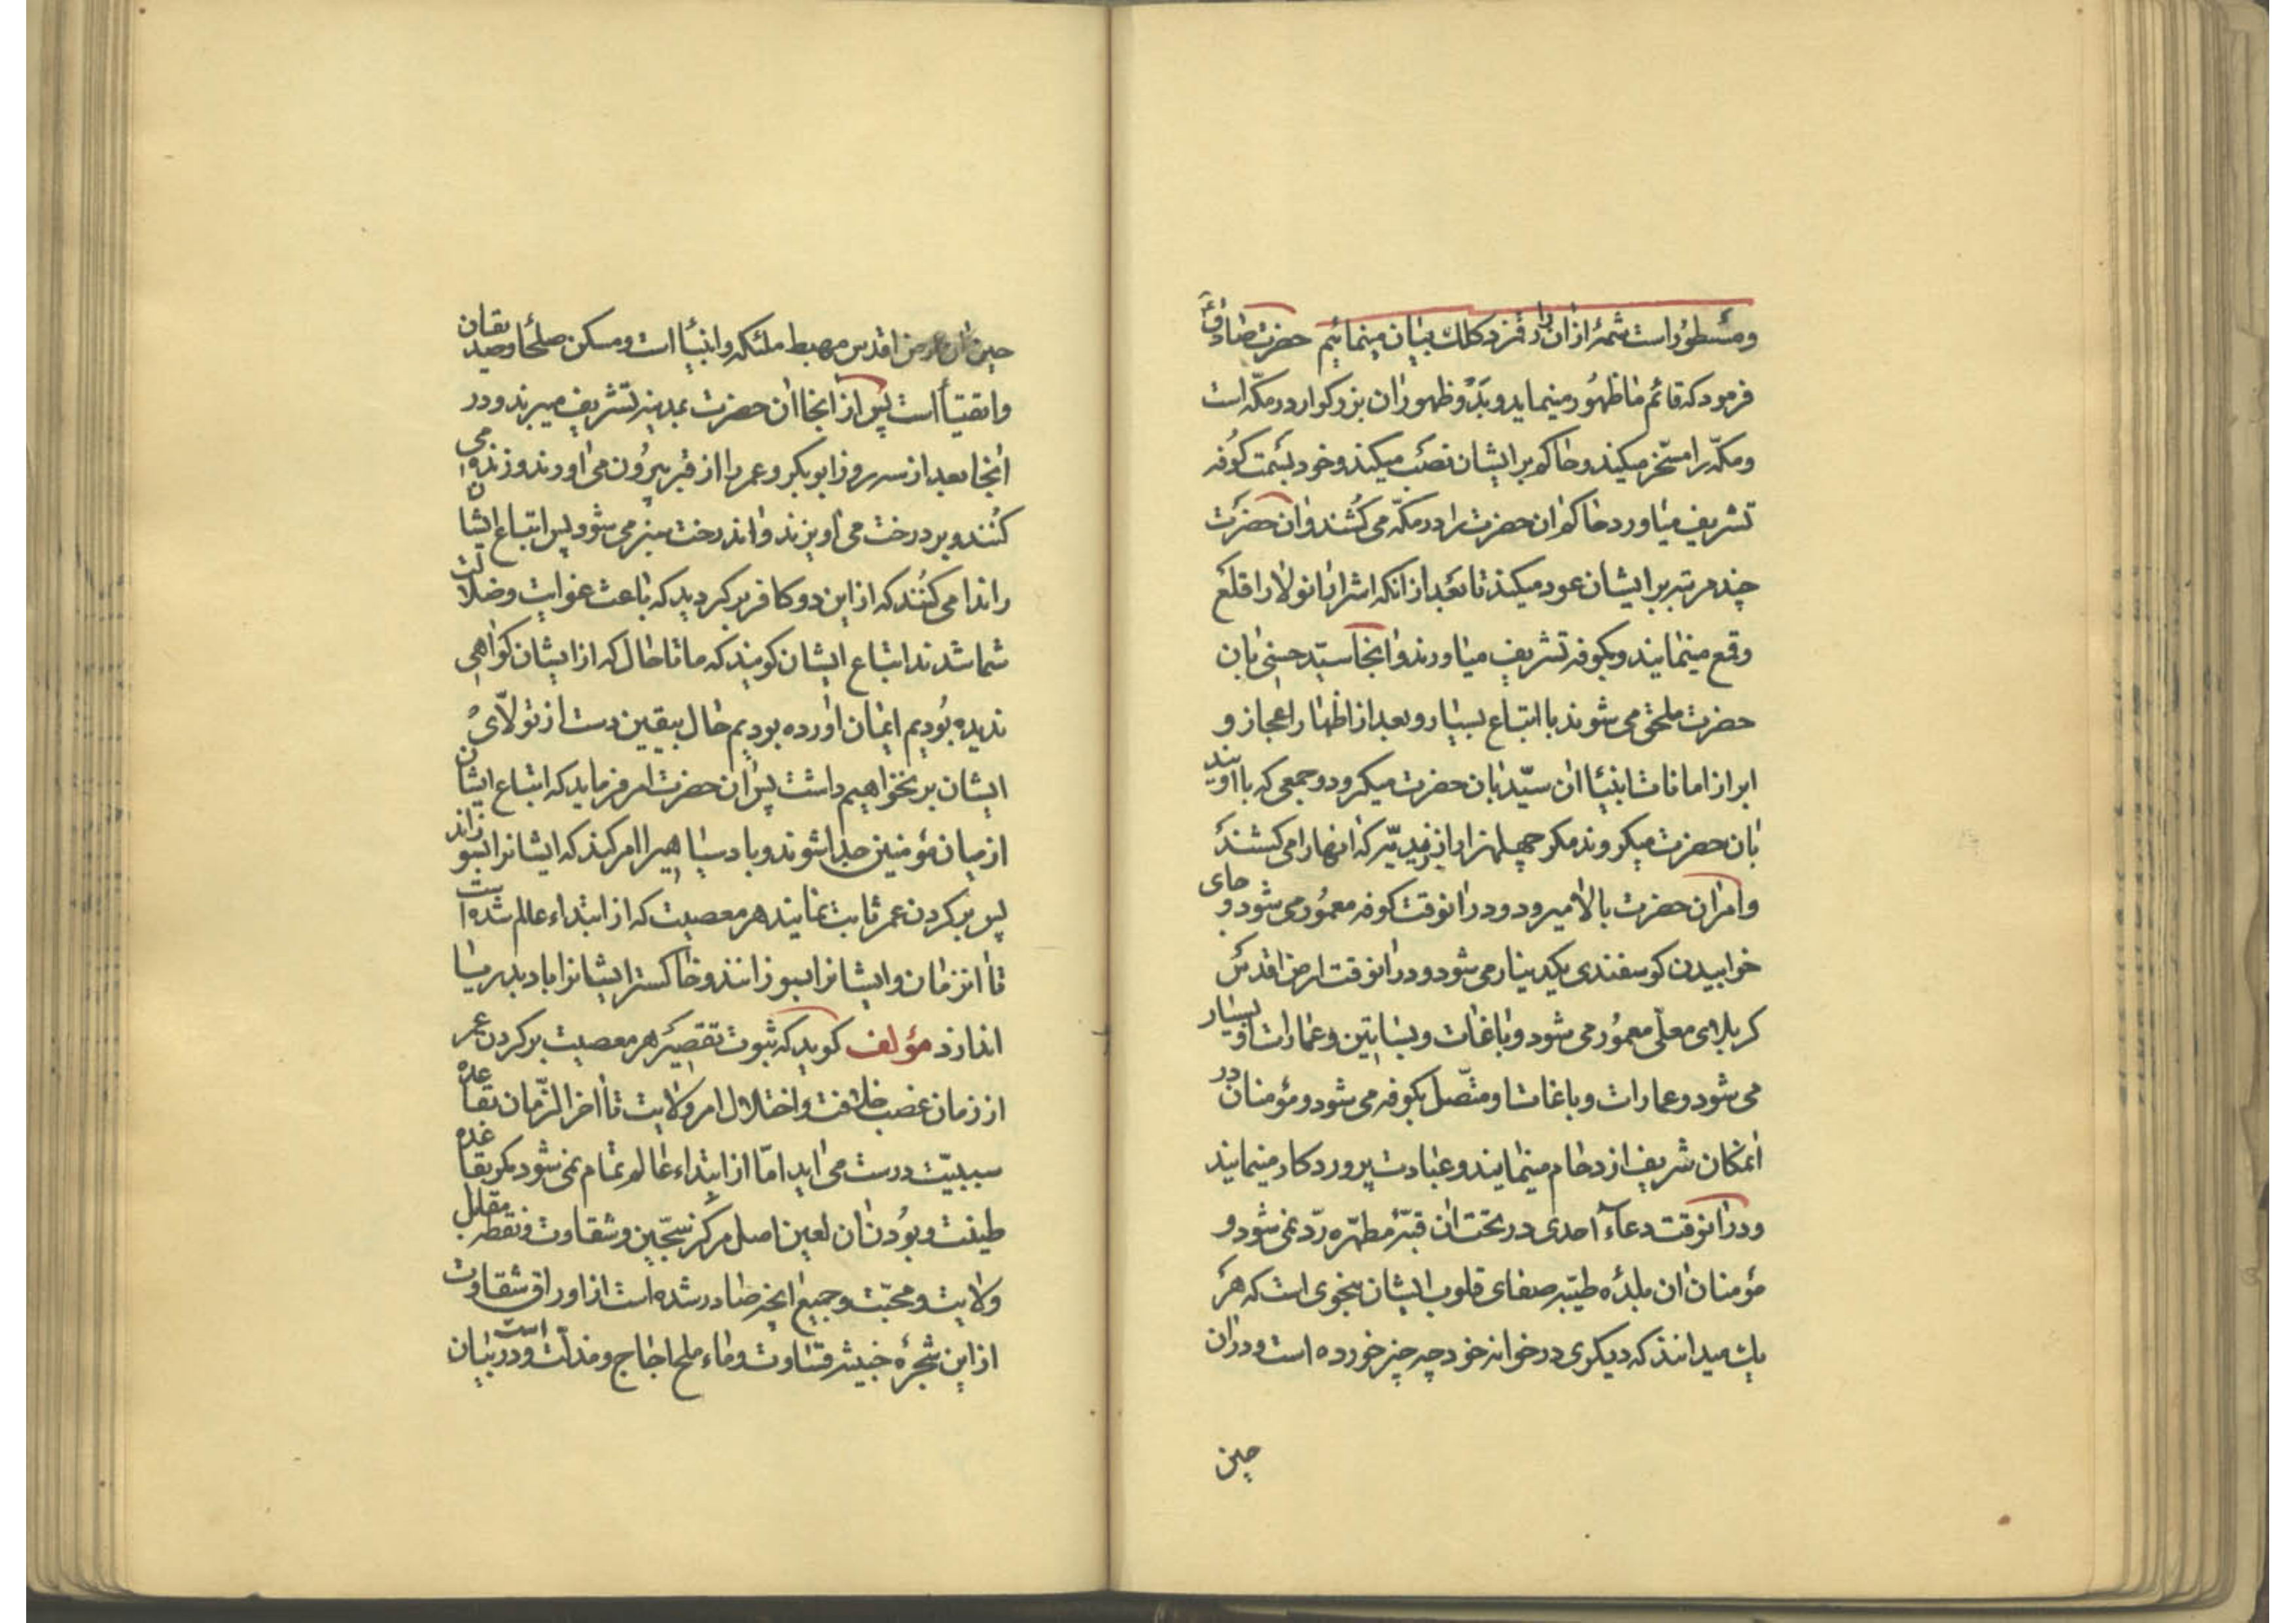 ومسطور است شمۀ از ان را قمزد کلك بیان مینمائیم حضرت صادقؑ
فرمود که قائم ما ظهور مینماید و بدو ظهور ان بزرگوار در مکّه است
ومکّه را مسخّر میکند و حاکم بر ایشان نصب میکند و خود بسمت کوفه
تشریف میاورد حاکم ان حضرت را در مکّه می کُشند و ان حضرت
چند مرتبه بر ایشان عود میکند تا بعد از انکه اشرار انولا را قلع
وقمع مینمایند و بکوفه تشریف میاورند و انجا سیّد حسنی بان
حضرت ملحق می شوند با اتباع بسیار و بعد از اظهار اعجاز و
ابراز امانات انبیا ان سیّد بان حضرت میکرود و جمعی که با اویند
بان حضرت میکروند مکر چهلهزار از زیدیّه که انها را می کشند
وامر ان حضرت بالا میرود و در انوقت کوفه معمُور می شود و جای
خوابیدن کوسفندی بکدینار می شود و در انوقت ارض اقدس
کربلای معلّی معمُور می شود و باغات و بساتین و عمارات او بسیار
می شود و عمارات و باغات او متّصل بکوفه می شود و مؤمنان در
انمکان شریف ازدحام مینمایند و عبادت پروردکار مینمایند
ودر انوقت دعاء احدی در تحت ان قبّۀ مطهّره ردّ نمی شود و
مؤمنان ان بلدۀ طیّبه صفای قلوب ایشان بنحوی است که هر
یك میدانند که دیکری در خوانه خود چه چیز خورده است و دران
حین
حین ارض اقدس مهبط ملئکه و انبیا است و مسکن صلحا و صدیقان
واتقیا است پس از انجا ان حضرت بمدینه تشریف میبرند و در
انجا بعد از سه روز ابوبکر و عمر را از قبر بیرُون می اورند و زنده می
کنُند و بر درخت می اویزند و اندرخت سبز می شود پس اتباع ایشان
را ندا می کنُند که از این دو کافر بر کردید که باعث غوایت و ضلالت
شما شدند اتباع ایشان کویند که ما تا حال که از ایشان کواهی
ندیده بُودیم ایمان اورده بودیم حال بیقین دست از تولّای
ایشان بر نخواهیم داشت پس ان حضرت امر فرماید که اتباع ایشان
از میان مؤمنین جدا شوند و باد سیاهیرا امر کند که ایشانرا بسوزاند
پس بر کردن عمر ثابت نمایند هر معصیت که از ابتداء عالم شده است
تا انزمان و ایشانرا بسوزانند و خاکستر ایشانرا باد بدریا
اندازد مؤلف کوید که ثبوت تقصیر هر معصیت بر کردن عمر
از زمان غصب خلافت و اختلال امر ولایت تا اخر الزّمان بقاعده
سببیّت درست می اید امّا از ابتداء عالم تمام نمی شود مکر بقاعده
طینت و بُودن ان لعین اصل مرکز سجّین و شقاوت و نقطه مقابل
ولایت و محبّت و جمیع انچه صادر شده است از اوراق شقاوت
از این شجرۀ خبیثه و ماء ملح اجاج و مذلّت است و در بیان